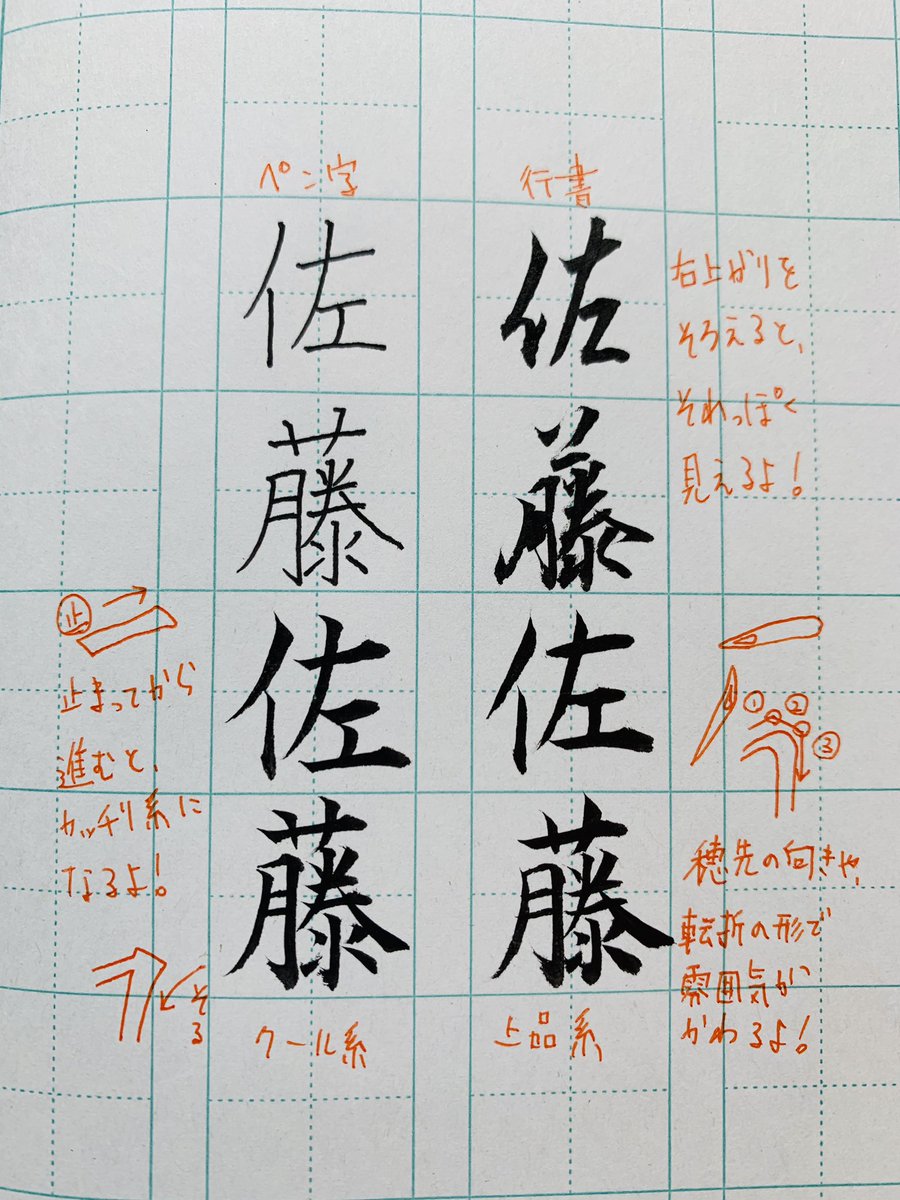 ペン字
佐
藤
行書
佐
藤
右上がりを
そろえると、
それっぽく
見えるよ!
止
止まってから
進むと、
カッチリ系に
なるよ!
そる
佐
藤
クール系
佐
藤
上品系
①
②
③
穂先の向きや、
転折の形で
雰囲気が
かわるよ!